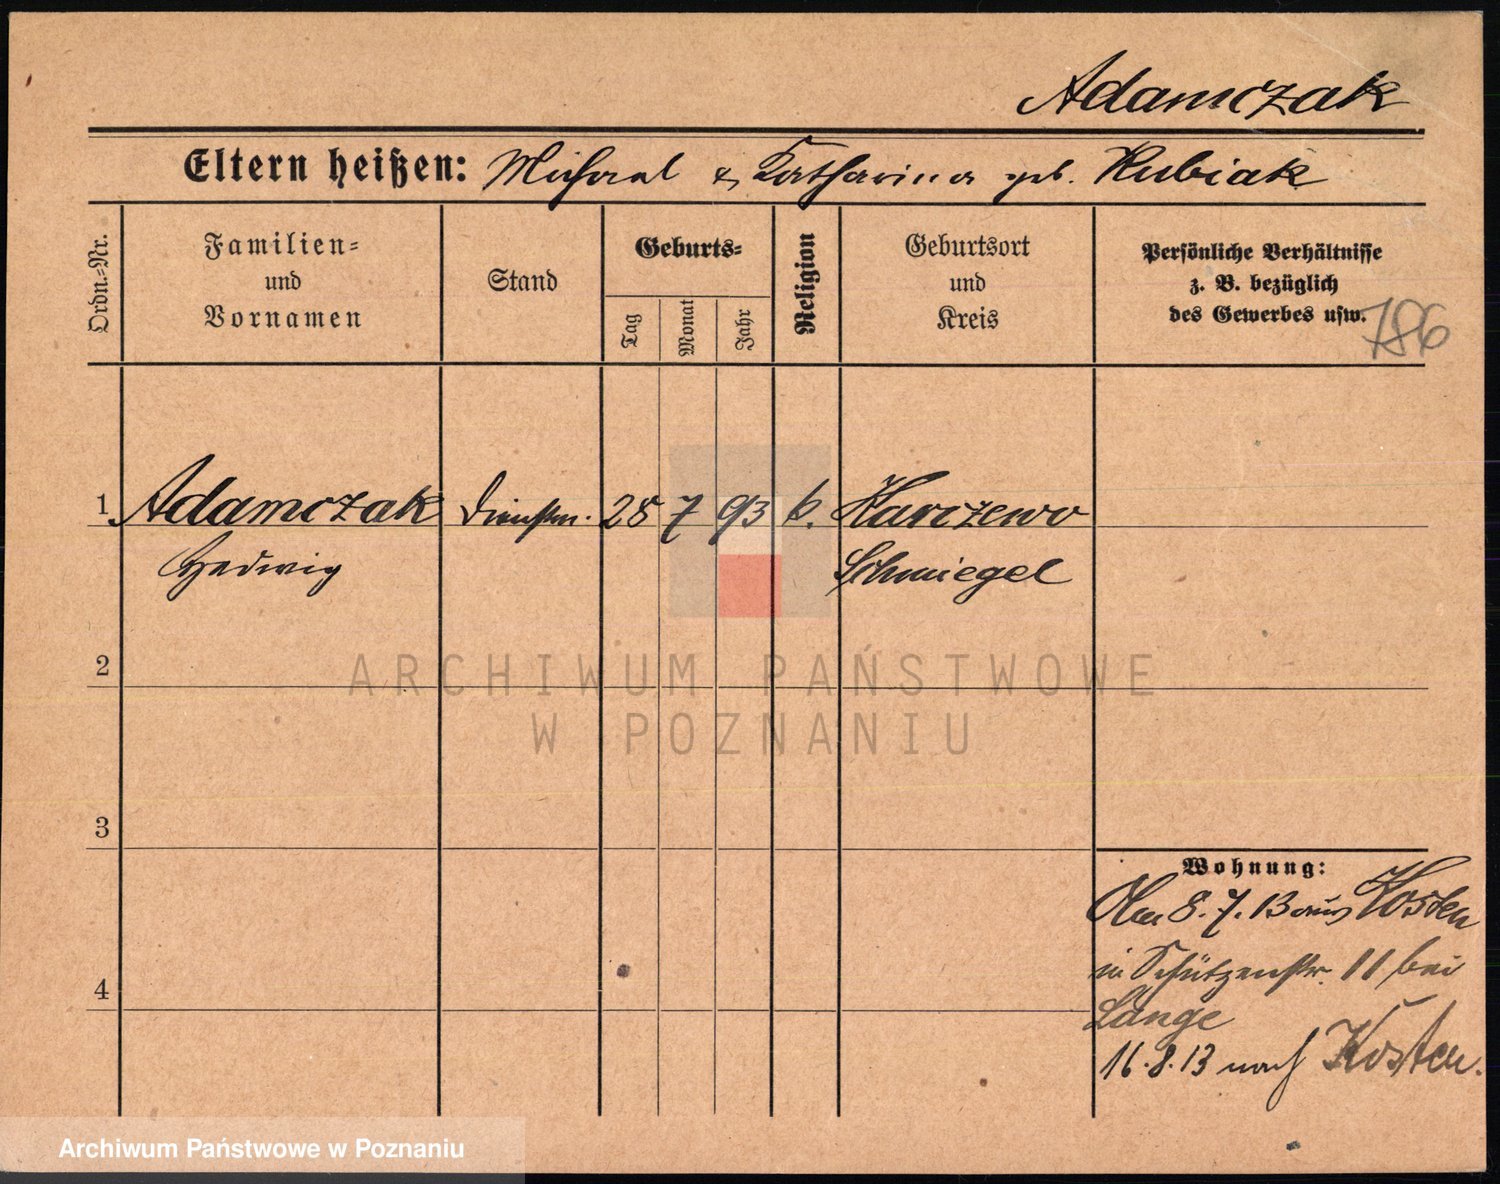 Adamczak
Eltern heißen: Michael & Katharina geb. Kubiak
Ordn.-Nr.
Familien-
und
Vornamen
Stand
Geburts-
Tag
Monat
Jahr
Religion
Geburtsort
und
Kreis
Persönliche Verhältnisse
z. B. bezüglich
des Gewerbes usw.
786
1 Adamczak Dienstm. 28 7 93 k. Karczewo
Hedwig Schmiegel
2
3
4
Wohnung:
8.7.13 aus Kosten
in Schützenstr. 11 bei
Lange
16.8.13 nach Kosten.
ARCHIWUM PAŃSTWOWE
W POZNANIU
Archiwum Państwowe w Poznaniu